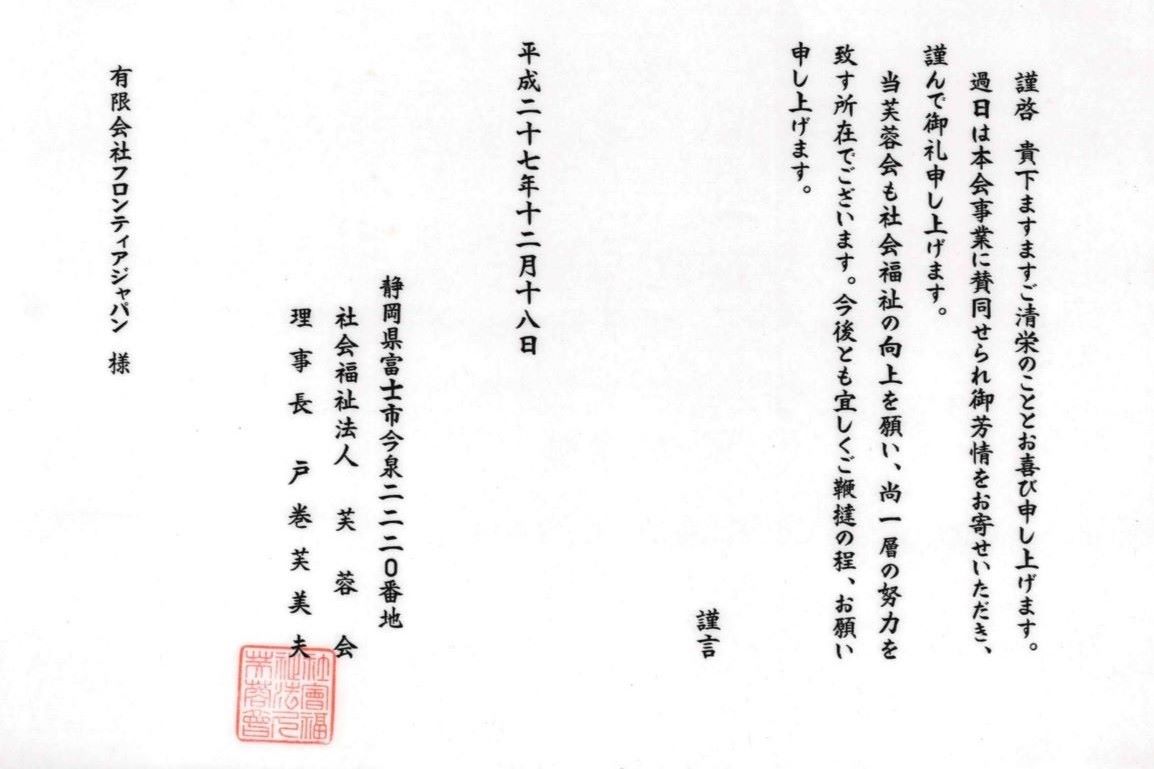 謹啓 貴下ますますご清栄のこととお喜び申し上げます。
過日は本会事業に賛同せられ御芳情をお寄せいただき、
謹んで御礼申し上げます。
当芙蓉会も社会福祉の向上を願い、尚一層の努力を
致す所在でございます。今後とも宜しくご鞭撻の程、お願い
申し上げます。
謹言
平成二十七年十二月十八日
静岡県富士市今泉二二二〇番地
社会福祉法人 芙蓉会
理事長 戸巻芙美夫
社會福
祉法人
芙蓉會
有限会社フロンティアジャパン 様